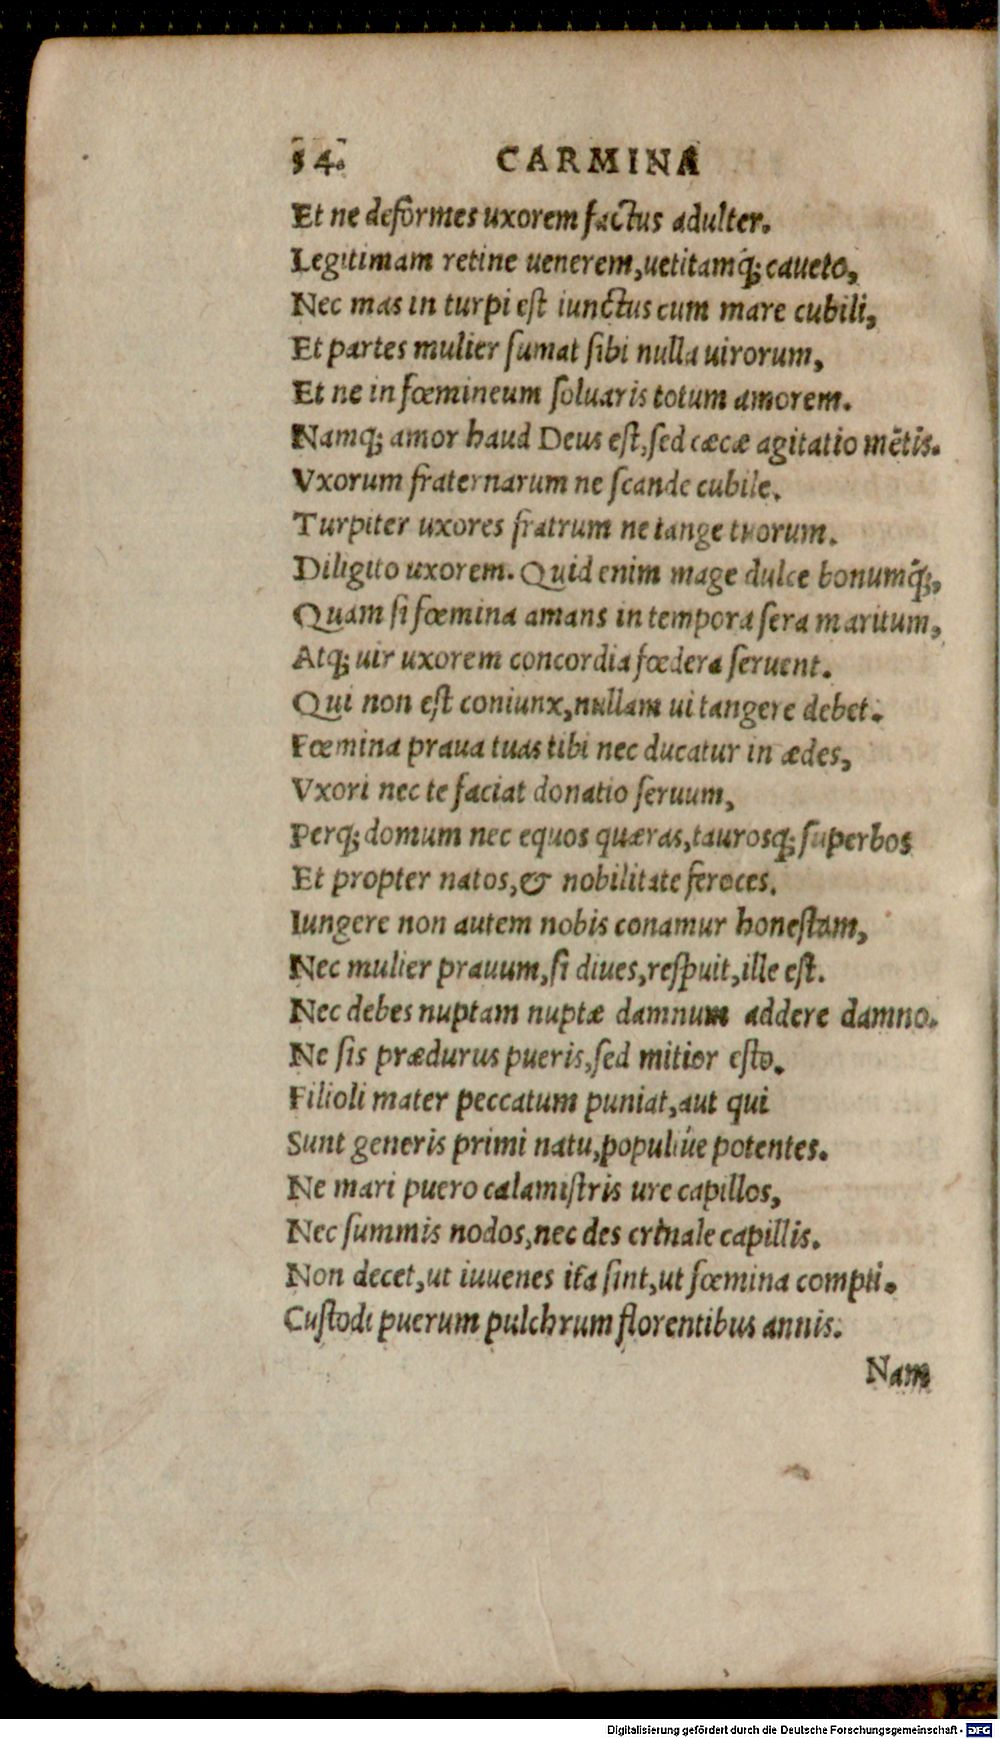 54. CARMINA
Et ne deformes uxorem factus adulter.
Legitimam retine uenerem, uetitamq́; caueto,
Nec mas in turpi est iunctus cum mare cubili,
Et partes mulier sumat sibi nulla uirorum,
Et ne in fœmineum soluaris totum amorem.
Namq; amor haud Deus est, sed cæcæ agitatio mētis.
Vxorum fraternarum ne scande cubile.
Turpiter uxores fratrum ne tange tuorum.
Diligito uxorem. Quid enim mage dulce bonumq́;,
Quam si fœmina amans in tempora sera maritum,
Atq; uir uxorem concordia fœdera seruent.
Qui non est coniunx, nullam ui tangere debet.
Fœmina praua tuas tibi nec ducatur in ædes,
Vxori nec te faciat donatio seruum,
Perq; domum nec equos quæras, taurosq; superbos
Et propter natos, & nobilitate feroces.
Iungere non autem nobis conamur honestam,
Nec mulier prauum, si diues, respuit, ille est.
Nec debes nuptam nuptæ damnum addere damno.
Ne sis prædurus pueris, sed mitior esto.
Filioli mater peccatum puniat, aut qui
Sunt generis primi natu, populiúe potentes.
Ne mari puero calamistris ure capillos,
Nec summis nodos, nec des crinale capillis.
Non decet, ut iuuenes ita sint, ut fœmina compti.
Custodi puerum pulchrum florentibus annis.
Nam
Digitalisierung gefördert durch die Deutsche Forschungsgemeinschaft - DFG